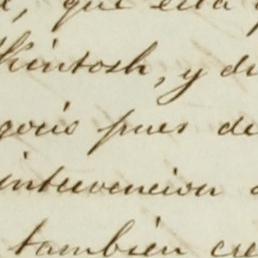 que esta
Kintosh, y de
gocio pues de
intervencion
tambien cre